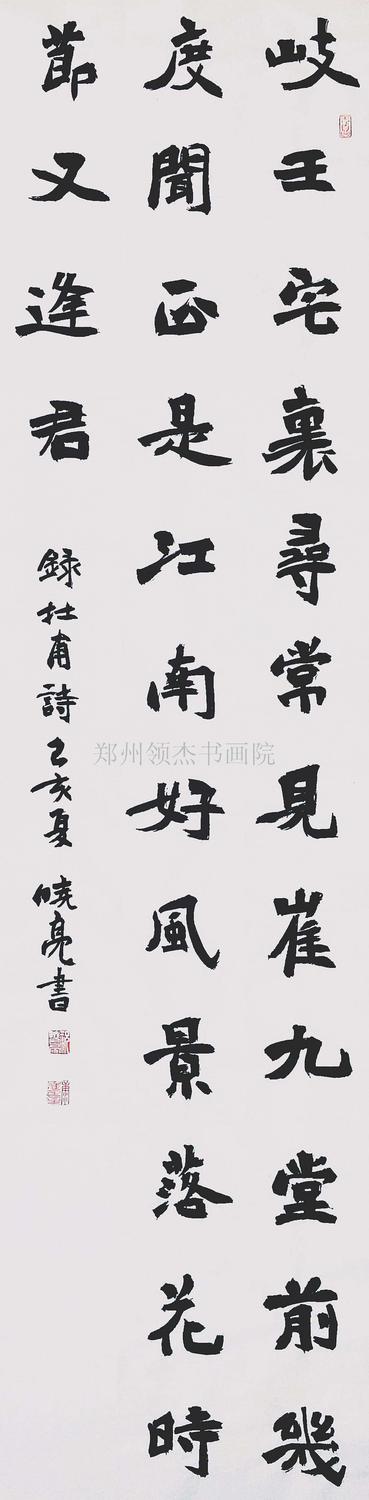 岐王宅裏尋常見崔九堂前幾
度聞正是江南好風景落花時
節又逢君
録杜甫詩乙亥夏曉亮書
郑州领杰书画院